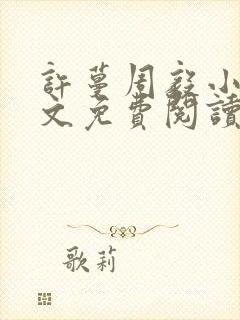 許蔓周毅小
文免費閱讀
歌莉